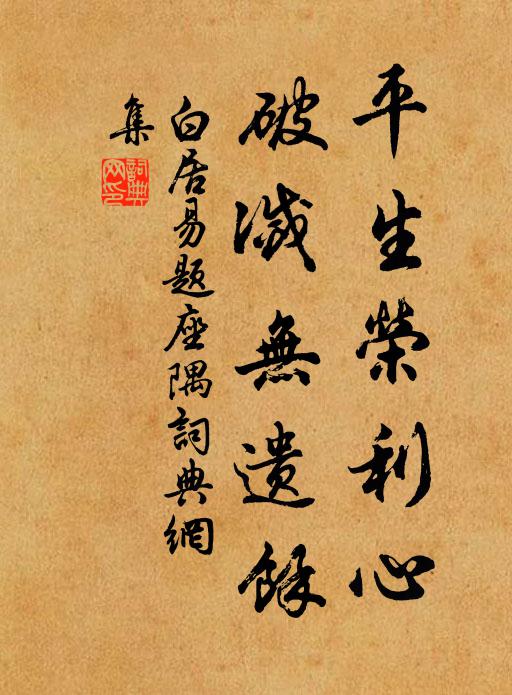 平生榮利心
破滅無遺餘
白居易題座隅詞典網
集
詞典網印